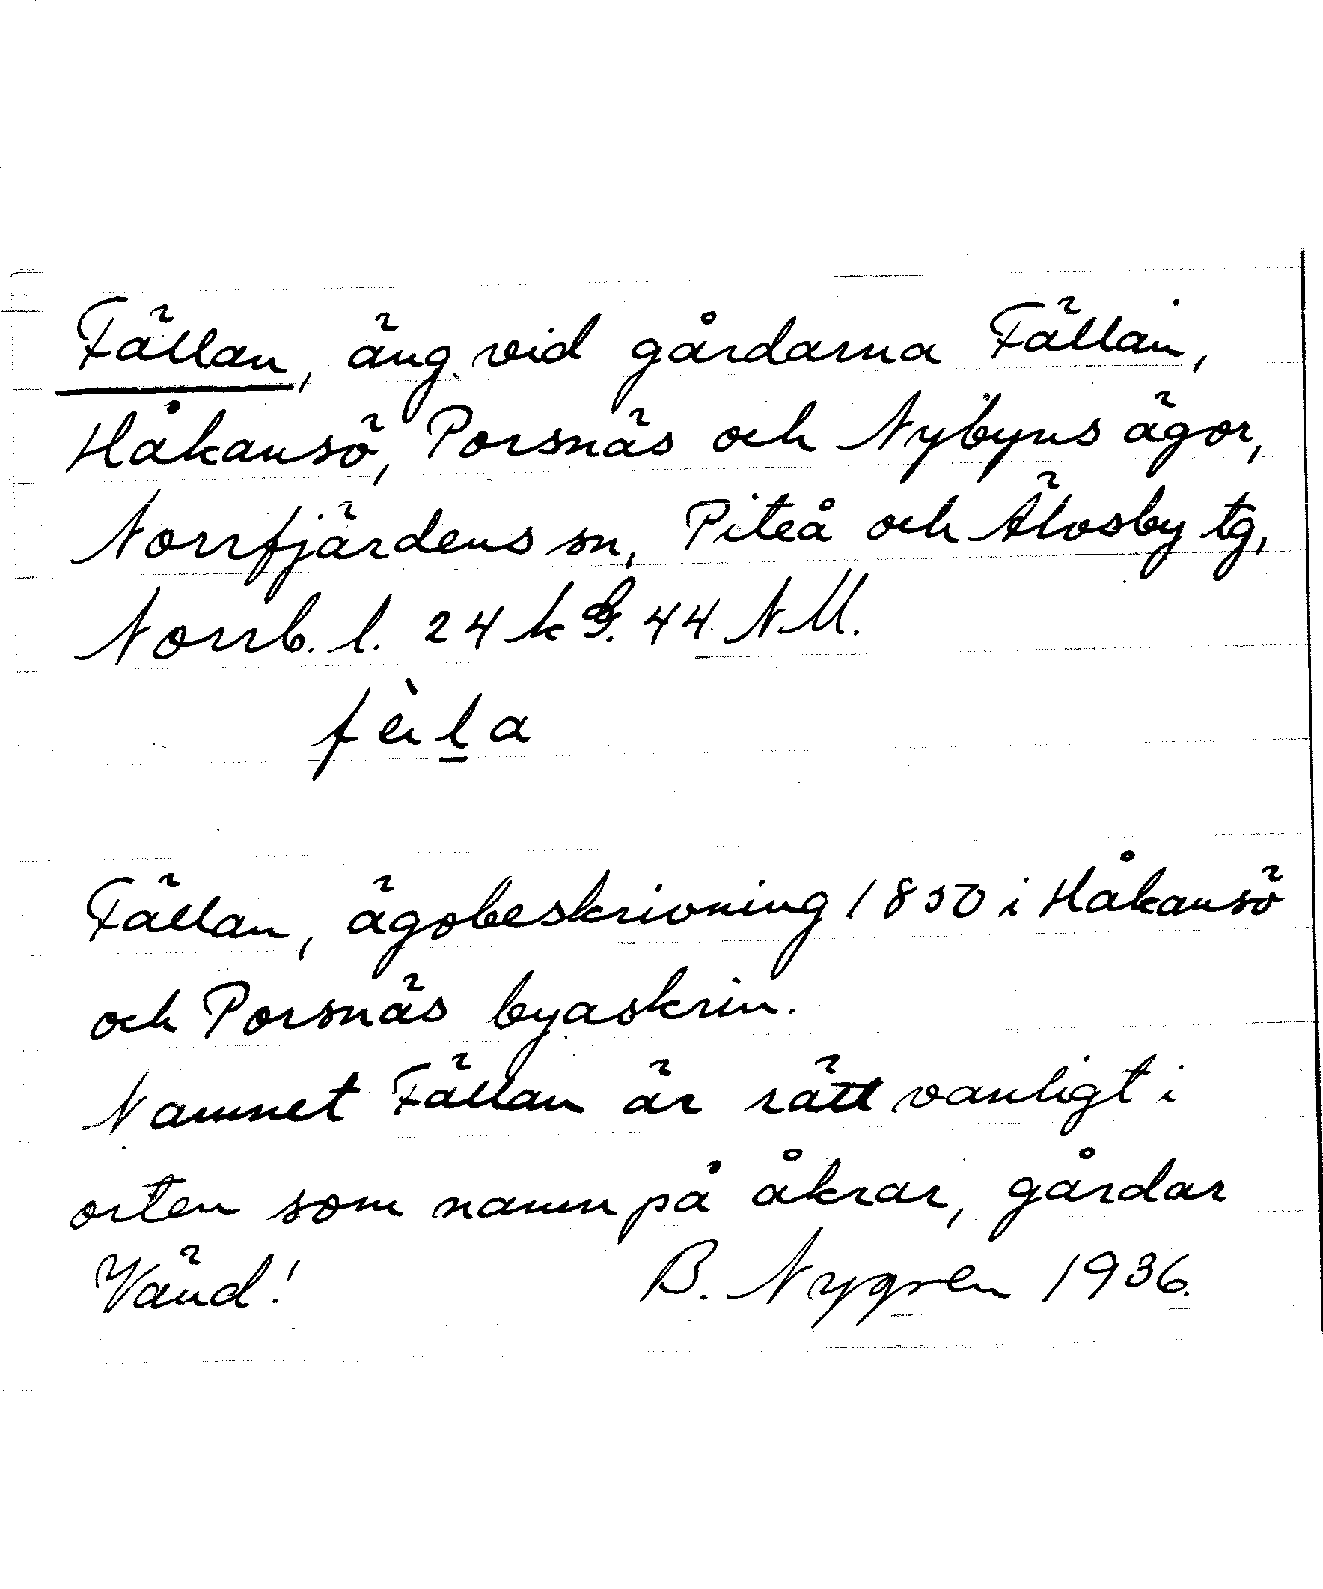 Fällan, äng vid gårdarna Fällan,
Håkansö, Porsnäs och Nybyns ägor,
Norrfjärdens sn, Piteå och Älvsby tg,
Norrb. l. 24 k G. 44 NM.
fèl̲a
Fällan, ägobeskrivning 1850 i Håkansö
och Porsnäs byaskrin.
Namnet Fällan är rätt vanligt i
orten som namn på åkrar, gårdar
Vänd! B. Nygren 1936.